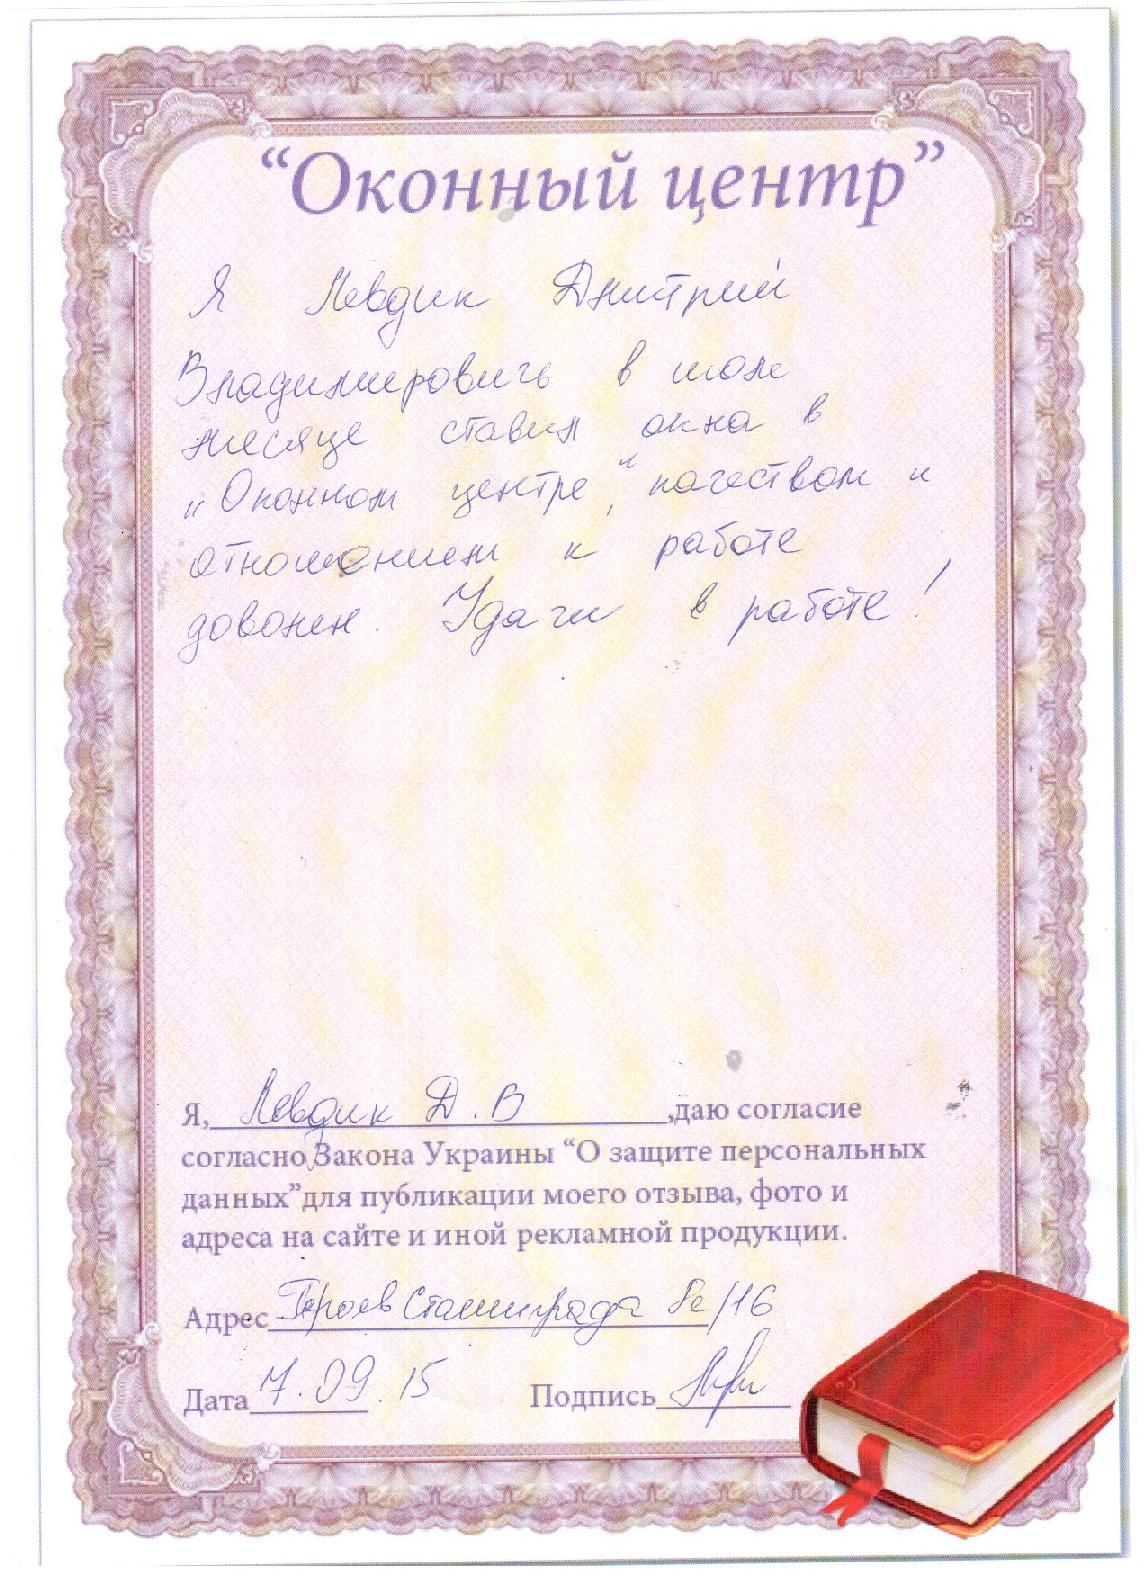 “Оконный центр”
Я Левдик Дмитрий
Владимирович в июле
месяце ставил окна в
"Оконном центре", качеством и
отношением к работе
доволен. Удачи в работе!
Я, Левдик Д. В ,даю согласие
согласно Закона Украины “О защите персональных
данных”для публикации моего отзыва, фото и
адреса на сайте и иной рекламной продукции.
Адрес Героев Сталинграда 8е/16
Дата 17.09.15 Подпись